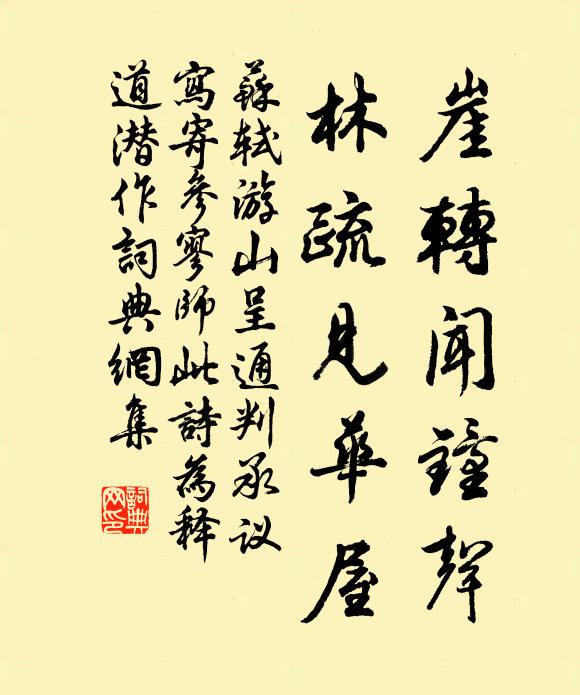 崖轉聞鐘聲
林疏見華屋
蘇軾游山呈通判承议
寫寄參寥師此詩為释
道潜作詞典網集
詞典网印